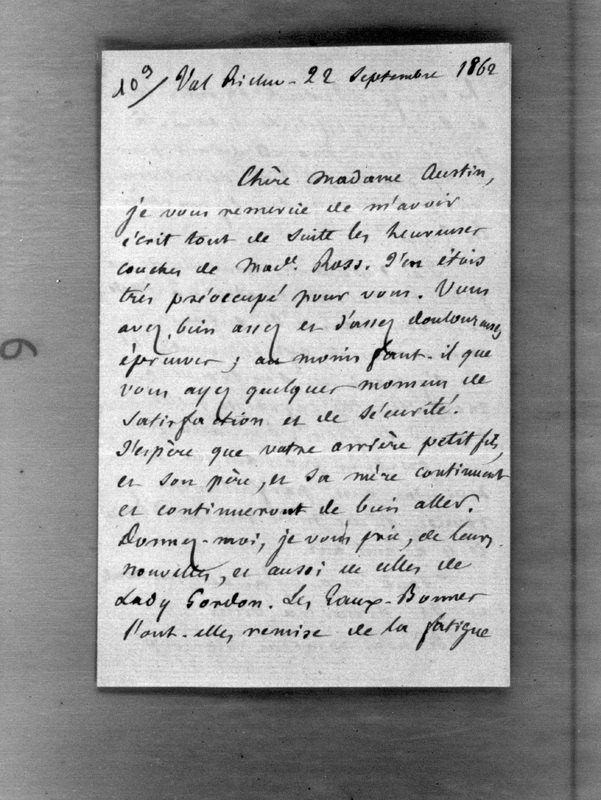 109/ Val Richer - 22 Septembre 1862
Chère Madame Austin,
je vous remercie de m'avoir
écrit tout de suite les heureuses
couches de Mad.e Ross. J'en étois
très préoccupé pour vous. Vous
avez bien assez et d'assez douloureuses
épreuves ; au moins faut-il que
vous ayez quelques momens de
satisfaction et de sécurité.
J'espère que votre arrière petit fils,
et son père, et sa mère continuent
et continueront de bien aller.
Donnez-moi, je vous prie, de leurs
nouvelles, et aussi de celles de
Lady Gordon. Les Eaux-Bonnes
l'ont-elles remise de la fatigue
9